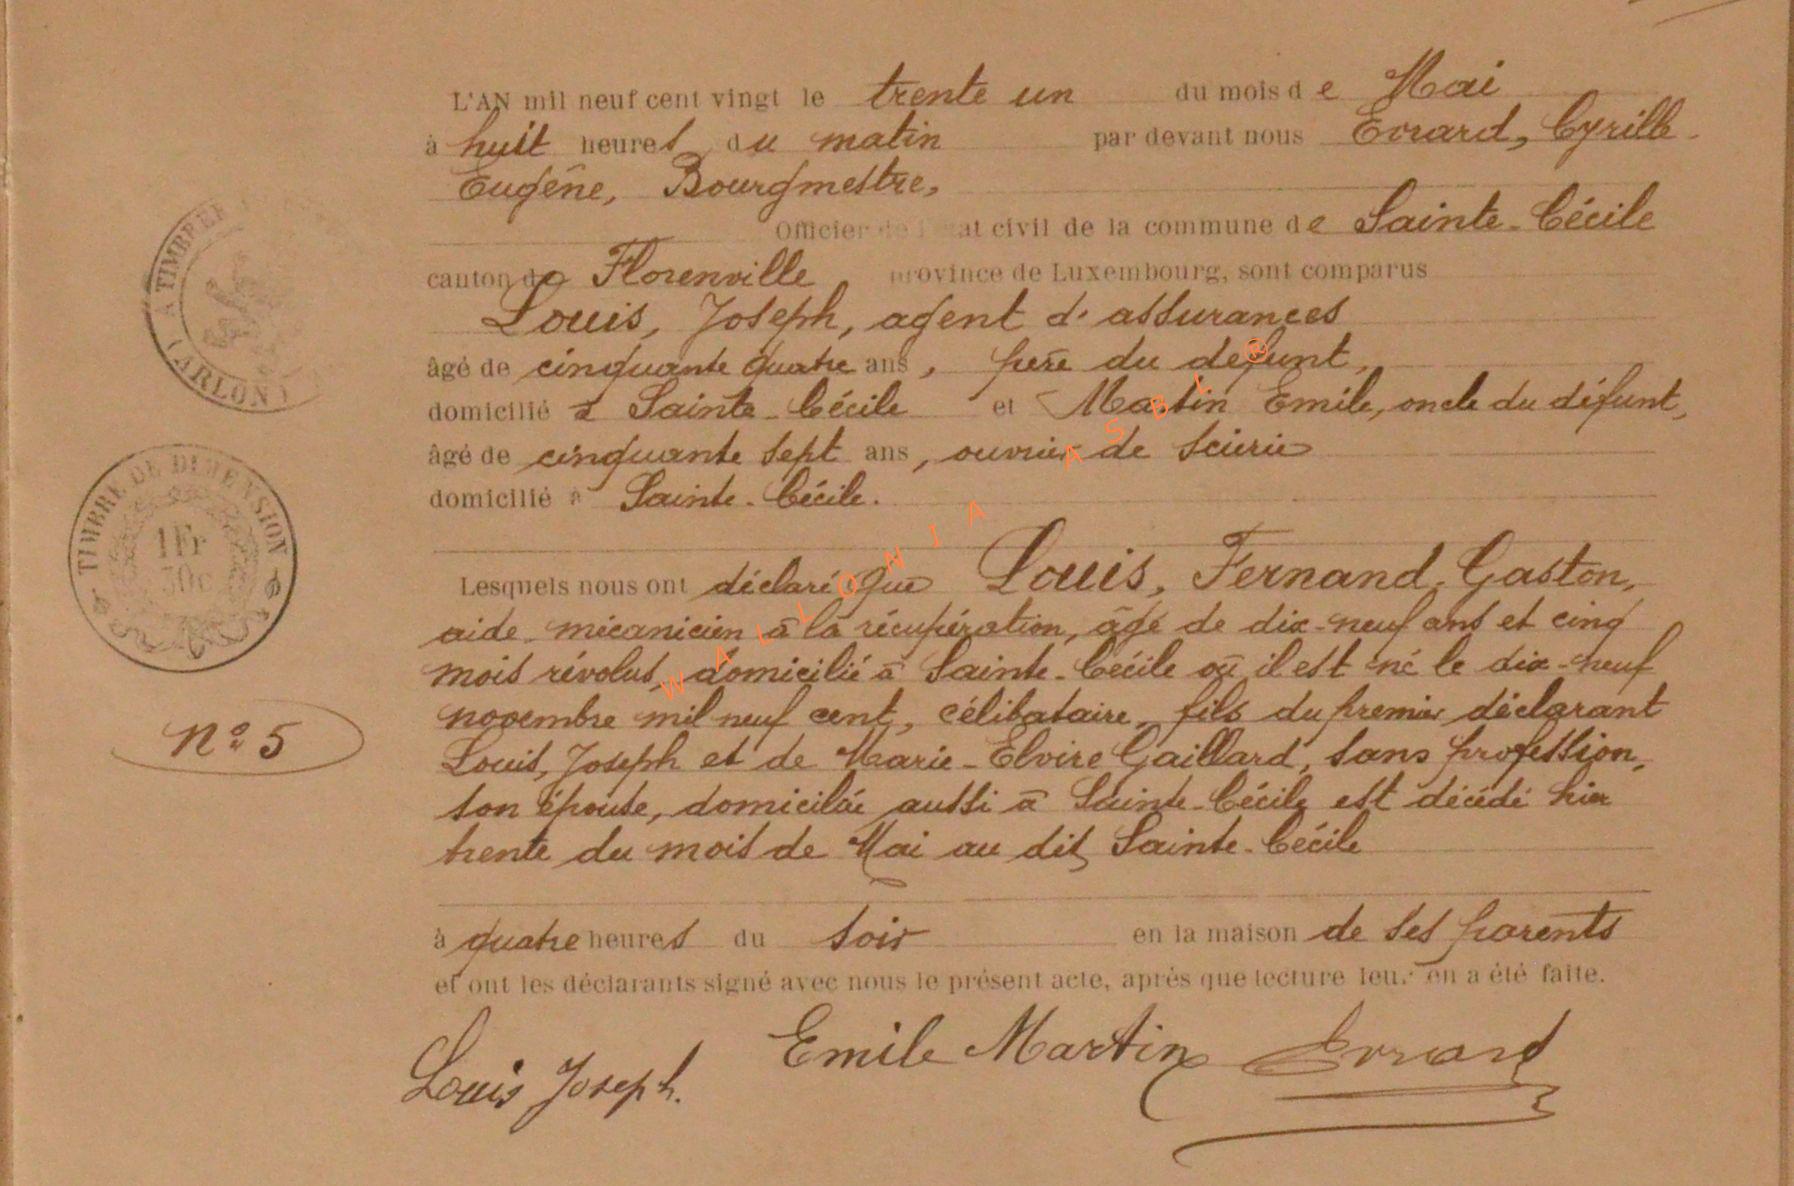 L'AN mil neuf cent vingt le trente un du mois de Mai
à huit heures du matin par devant nous Evrard, Cyrille
Eugène, Bourgmestre,
Officier de l'état civil de la commune de Sainte-Cécile
canton de Florenville province de Luxembourg, sont comparus
Louis, Joseph, agent d'assurances
âgé de cinquante quatre ans, père du défunt,
domicilié à Sainte-Cécile et Martin Emile, oncle du défunt,
âgé de cinquante sept ans, ouvrier de scierie
domicilié à Sainte-Cécile.
Lesquels nous ont déclaré que Louis, Fernand, Gaston,
aide-mécanicien à la récupération, âgé de dix-neuf ans et cinq
mois révolus, domicilié à Sainte-Cécile où il est né le dix-neuf
novembre mil neuf cent, célibataire, fils du premier déclarant
Louis, Joseph et de Marie-Elvire Gaillard, sans profession,
son épouse, domiciliée aussi à Sainte-Cécile est décédé hier
trente du mois de Mai au dit Sainte-Cécile
à quatre heures du soir en la maison de ses parents
et ont les déclarants signé avec nous le présent acte, après que lecture leur en a été faite.
Louis Joseph. Emile Martin Evrard
A TIMBRER
ARLON
TIMBRE DE DIMENSION
1 Fr
30c
N° 5
WALLONIA ASBL ®